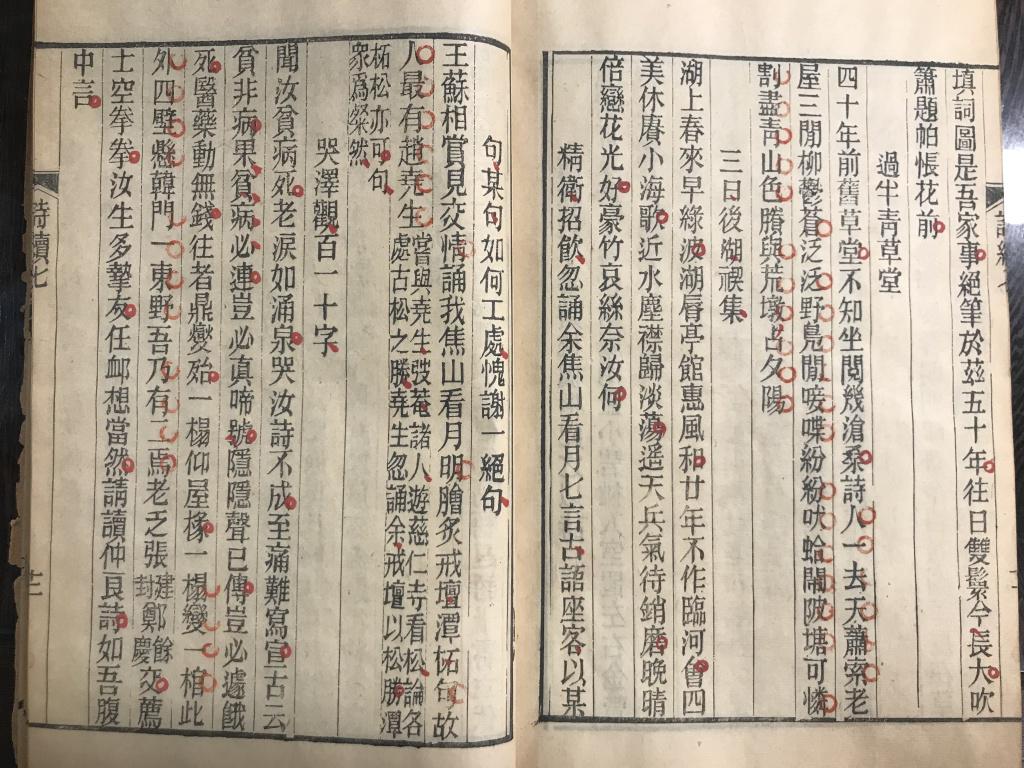 填詞圖是吾家事絕筆於茲五十年往日雙鬟今長大吹
簫題帕悵花前
過半青草堂
四十年前舊草堂不知坐閱幾滄桑詩人一去天蕭索老
屋三閒柳鬱蒼泛泛野鳧閒唼喋紛紛吠蛤鬧陂塘可憐
割盡靑山色賸與荒墩占夕陽
三日後湖禊集
湖上春來早綠波湖脣亭館惠風和廿年不作臨河會四
美休賡小海歌近水塵襟歸淡蕩遥天兵氣待銷磨晚晴
倍戀花光好豪竹哀絲奈汝何
精衛招飮忽誦余焦山看月七言古語座客以某
句某句如何工處愧謝一絕句
王蘇相賞見交情誦我焦山看月明膾炙戒壇潭柘句故
人最有趙堯生嘗與堯生弢菴諸人遊慈仁寺看松論各
處古松之勝堯生忽誦余戒壇以松勝潭
柘松亦可句
衆爲粲然
哭澤觀百一十字
聞汝貧病死老淚如涌泉哭汝詩不成至痛難寫宣古云
貧非病果貧病必連豈必真啼號隱隱聲已傳豈必遽餓
死醫藥動無錢往者鼎爕殆一榻仰屋椽一榻變一棺此
外四壁懸韓門一東野吾乃有二焉老乏張建封鄭餘慶交薦
士空拳拳汝生多摯友任卹想當然請讀仲良詩如吾腹
中言
詩續七